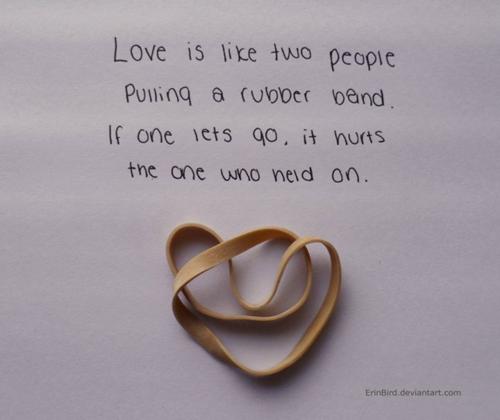 Love is like two people
Pulling a rubber band.
If one lets go, it hurts
the one who held on.
ErinBird.deviantart.com